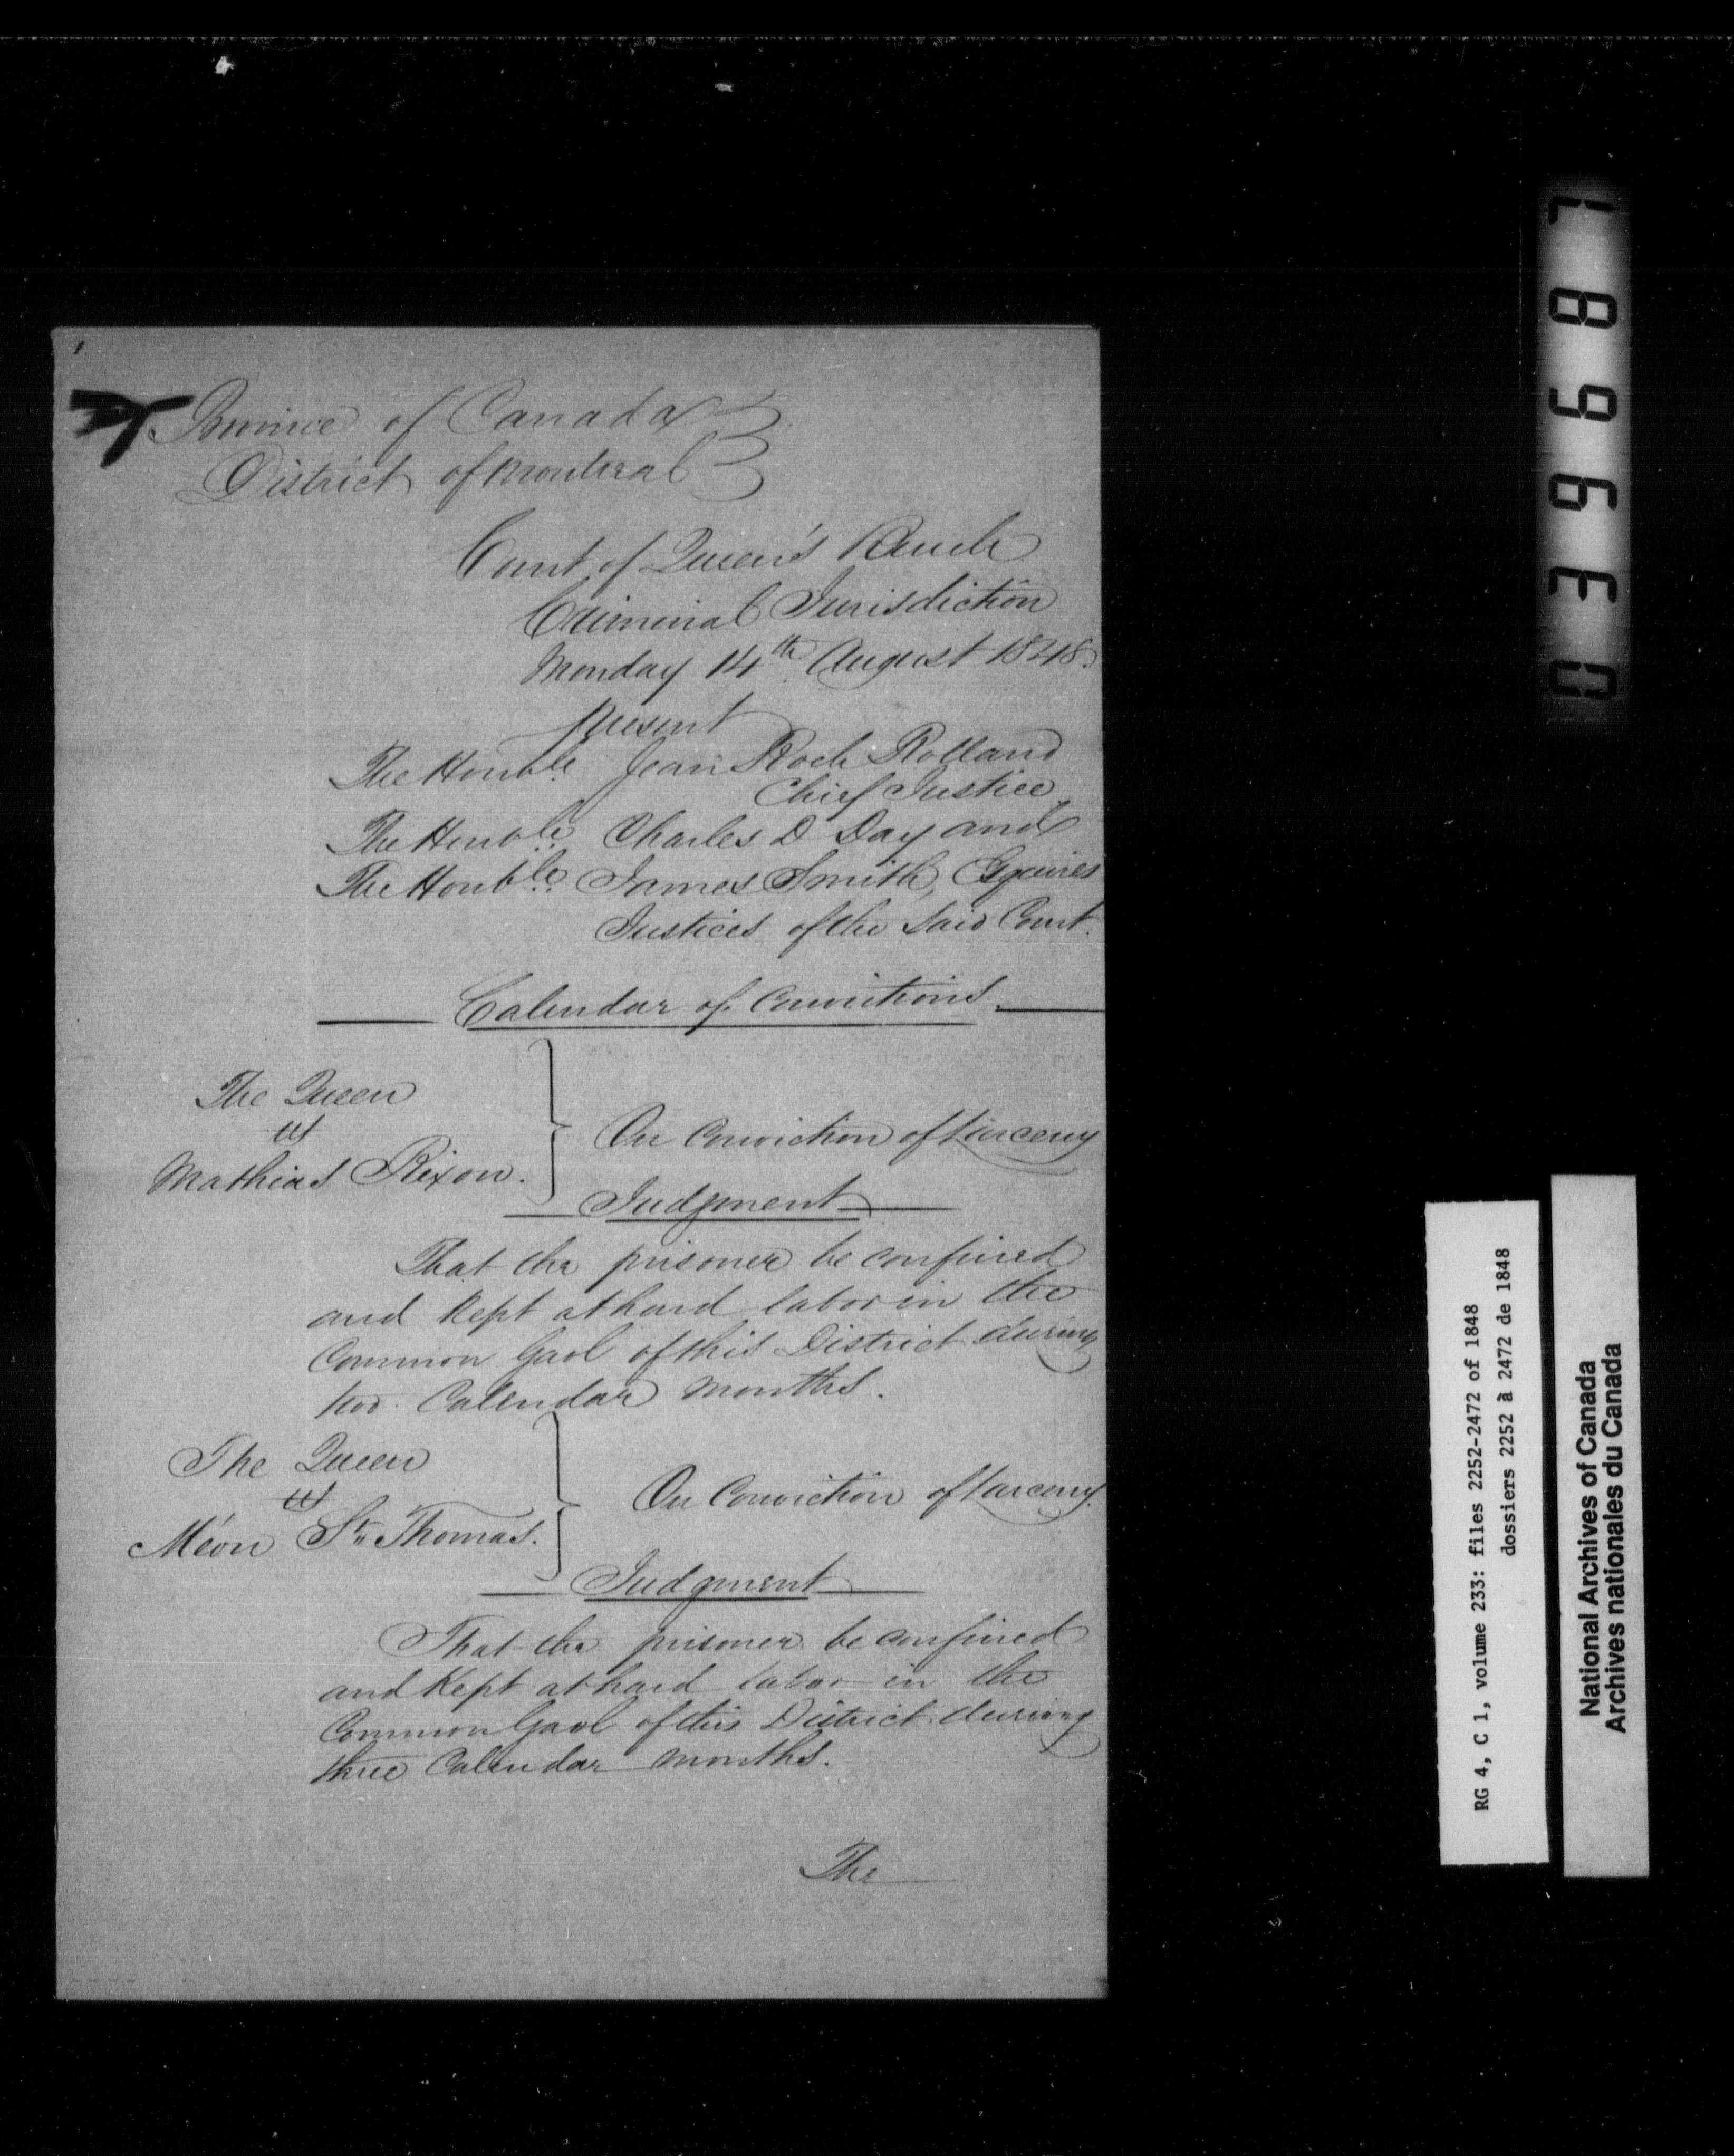 Province of Canada
District of Montreal
Court of Queen's Bench
Criminal Jurisdiction
Monday 14th August 1848.
Present
The Honble. Jean Roch Rolland
Chief Justice
The Honble. Charles D Day and
The Honble. James Smith, Esquires
Justices of the said Court.
Calendar of Convictions
The Queen
vs
Mathias Rixon.
On Conviction of Larceny
Judgment
That the prisoner be confined
and kept at hard labor in the
Common Gaol of this District during
two Calendar months.
The Queen
vs
St. Thomas.
On Conviction of Larceny.
Judgment
That the prisoner be confined
and kept at hard labor in the
Common Gaol of this District during
three Calendar months.
The
039687
RG 4, C 1, volume 233: files 2252-2472 of 1848
dossiers 2252 à 2472 de 1848
National Archives of Canada
Archives nationales du Canada